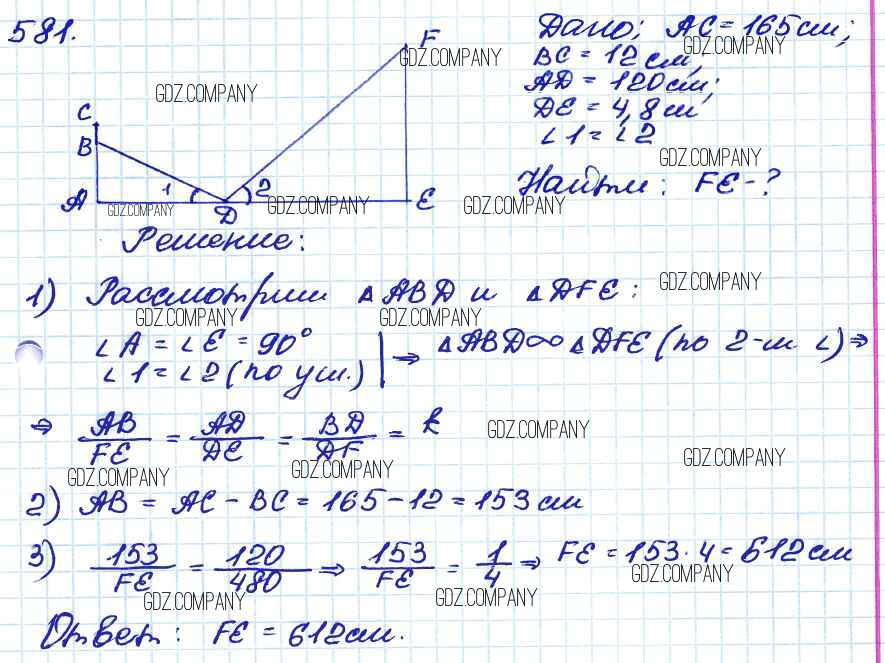 581.
Дано: AC = 165 см;
BC = 12 см;
AD = 120 см;
DE = 4,8 м
∠1 = ∠2
Найти: FE - ?
F
C
B
A
1
D
2
E
GDZ.COMPANY
GDZ.COMPANY
GDZ.COMPANY
GDZ.COMPANY
GDZ.COMPANY
GDZ.COMPANY
GDZ.COMPANY
Решение:
1) Рассмотрим △ABD и △DFE:
GDZ.COMPANY
GDZ.COMPANY
GDZ.COMPANY
∠A = ∠E = 90° | ⇒ △ABD ∞ △DFE (по 2-м ∠) ⇒
∠1 = ∠2 (по усл.)
⇒ AB/FE = AD/DE = BD/DF = k
GDZ.COMPANY
GDZ.COMPANY
GDZ.COMPANY
GDZ.COMPANY
2) AB = AC - BC = 165 - 12 = 153 см
3) 153/FE = 120/480 ⇒ 153/FE = 1/4 ⇒ FE = 153 · 4 = 612 см
GDZ.COMPANY
GDZ.COMPANY
GDZ.COMPANY
Ответ: FE = 612 см.